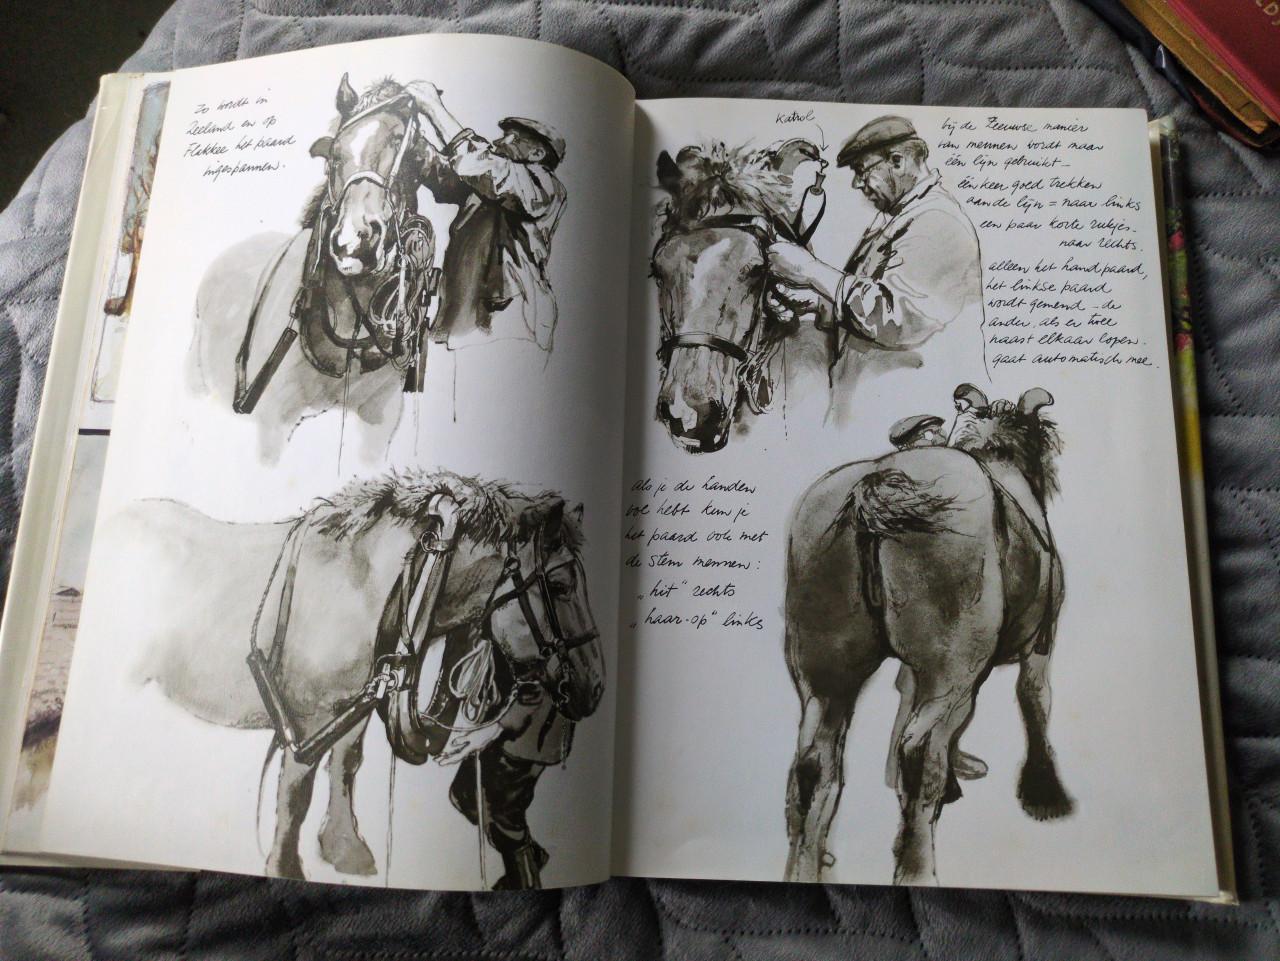 Zo wordt in
Zeeland en op
Flakkee het paard
ingespannen.
Katrol
bij de Zeeuwse manier
van mennen wordt maar
één lijn gebruikt -
één keer goed trekken
aan de lijn = naar links
een paar korte rukjes -
naar rechts.
alleen het handpaard,
het linkse paard
wordt gemend - de
ander, als er twee
naast elkaar lopen.
gaat automatisch mee.
als je de handen
vol hebt kun je
het paard ook met
de stem mennen:
"hit" rechts
"haar-op" links